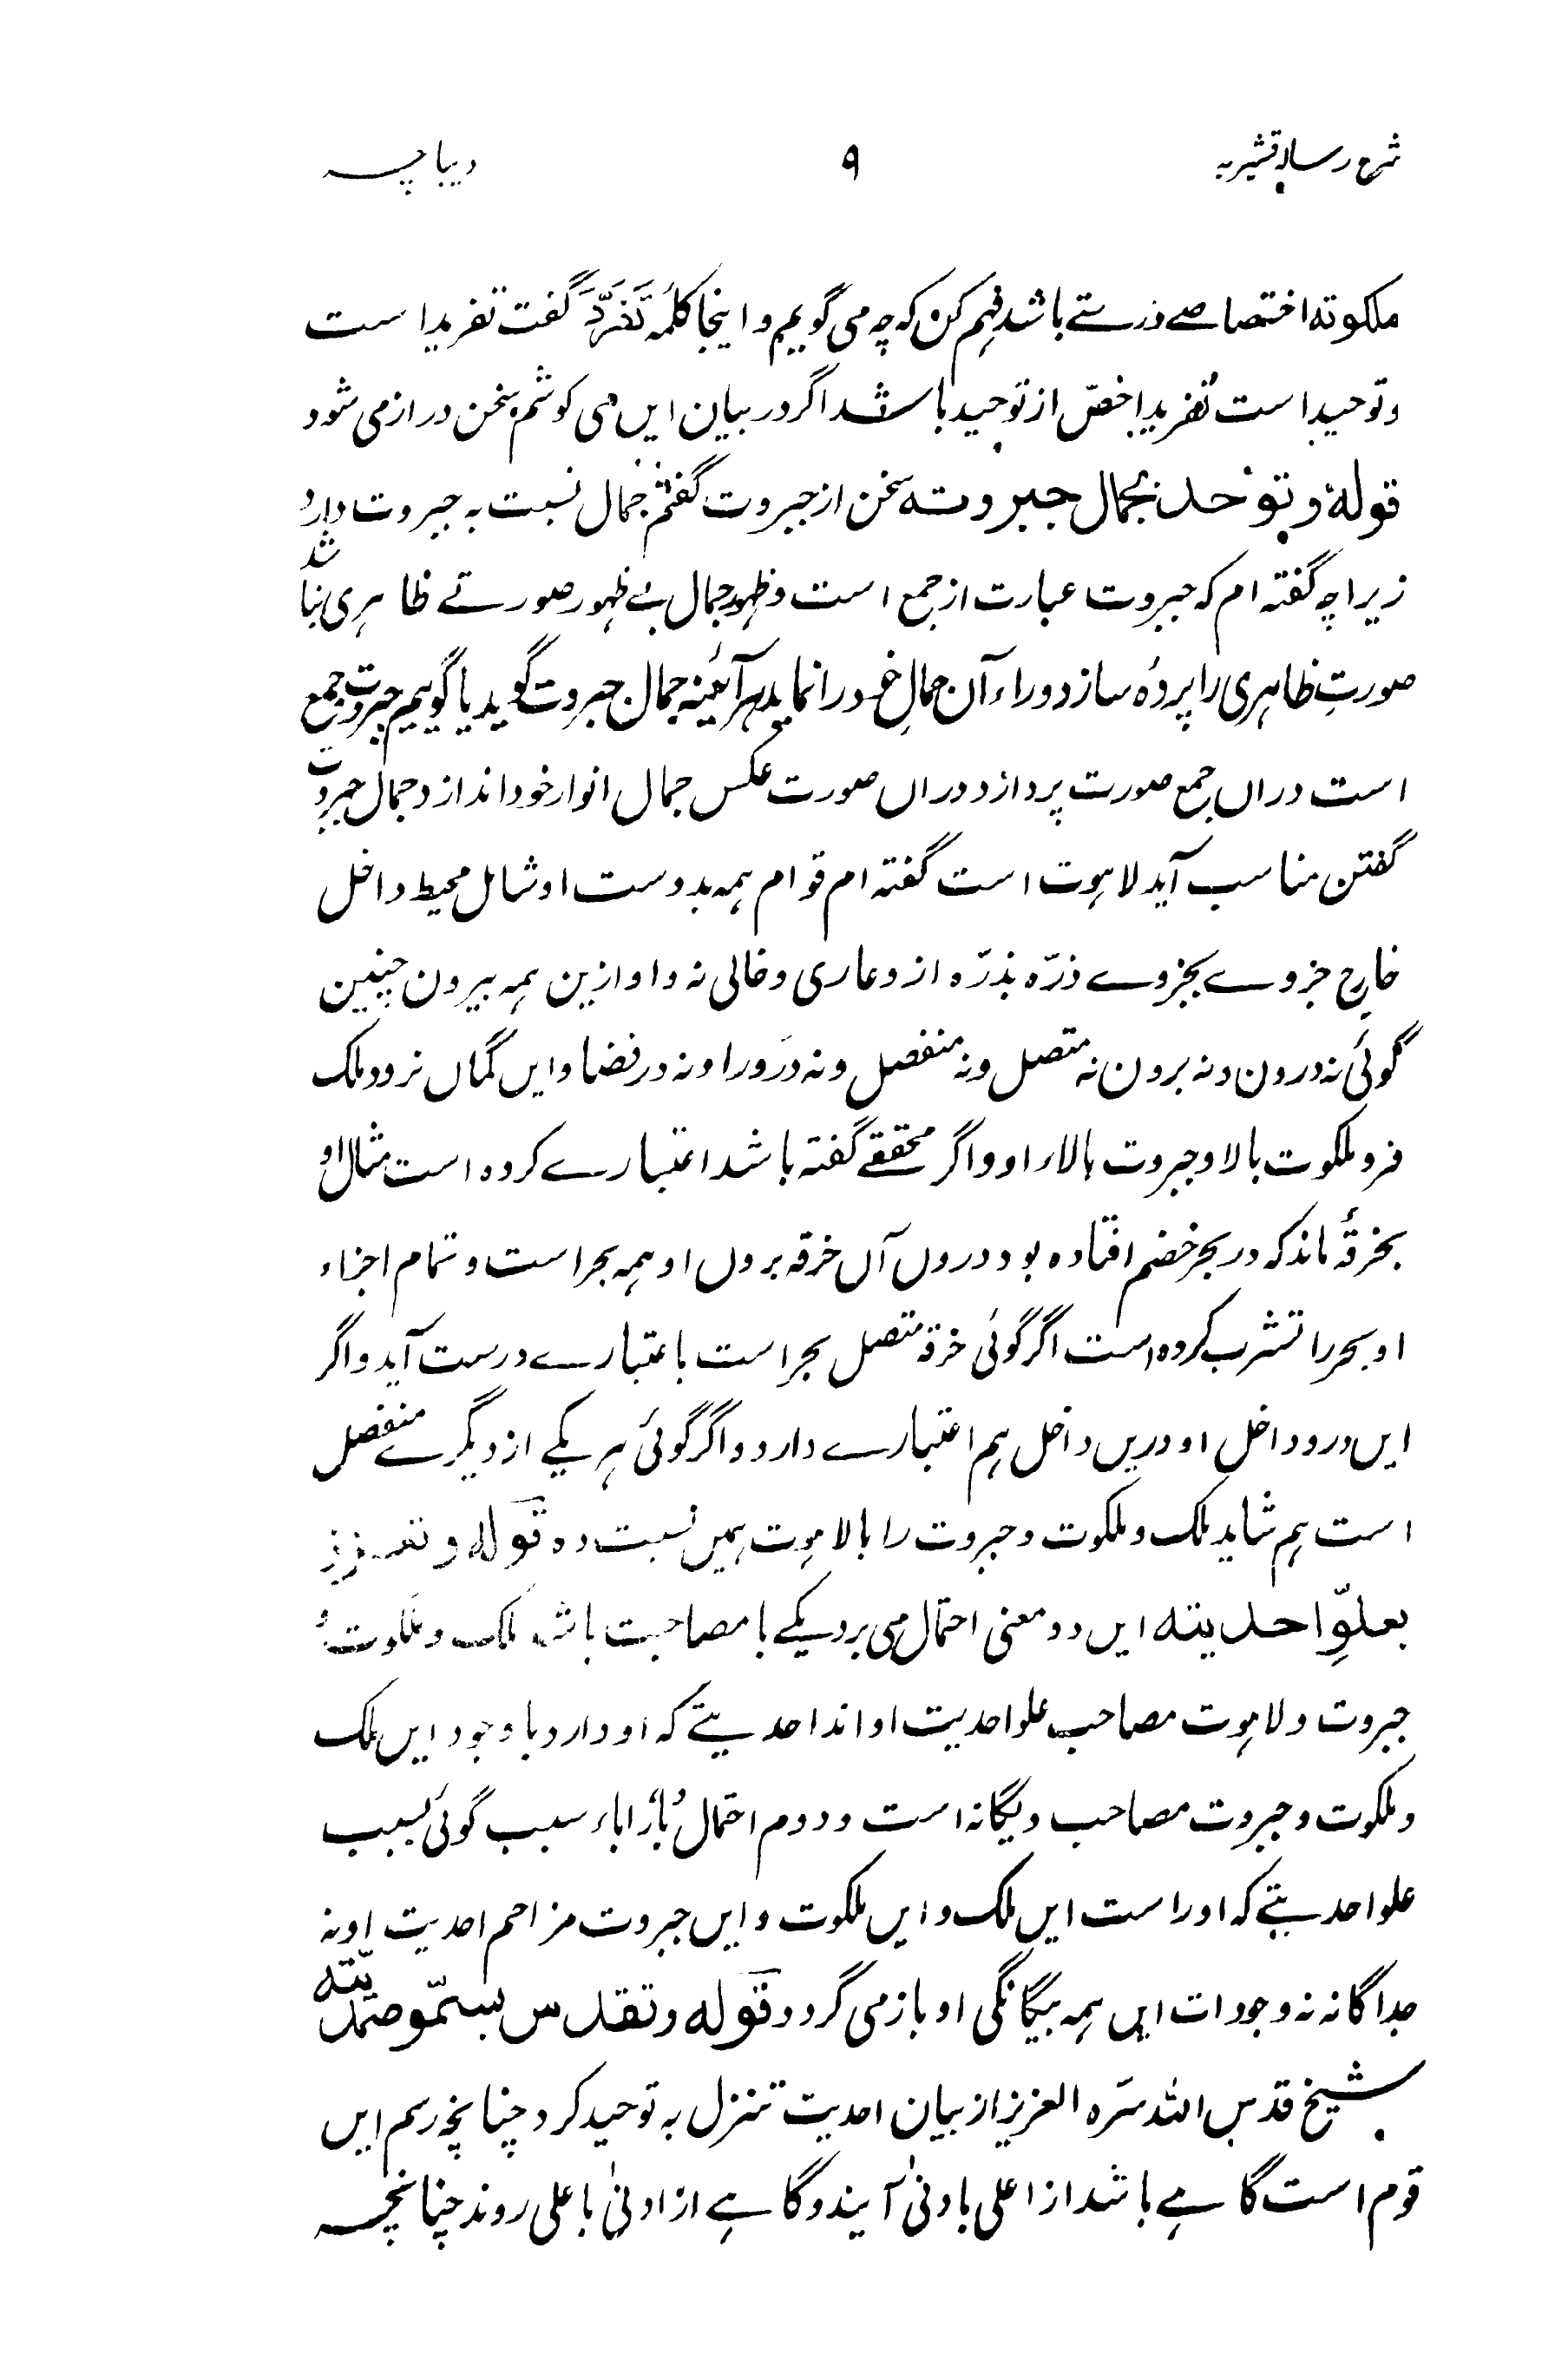 شرح رسالہ قشیریہ ۹ دیباچہ
ملکوتہ اختصاصے درستے باشد فہم کن کہ چہ می گویم و اینجا کلمہ تَفَرَّدَ گفت تفرید است
و توحید است تفرید اخصّ از توحید باشد اگر در بیان ایں می کوشم سخن دراز می شود
قولہ وتوحد بجمال جبروتہ سخن از جبروت گفتم جمال نسبت بہ جبروت دارد
زیراچہ گفتہ ام کہ جبروت عبارت از جمع است و ظہور جمال بے ظہور صورتے ظاہری نباشد
صورتِ ظاہری را پردہ سازد وراء آن جمالِ خود را نماید ہر آئینہ جمال جبروت گوید یا گوییم جبروت جمع
است دراں جمع صورت پردازد دراں صورت عکس جمال انوار خود اندازد جمال جبروت
گفتن مناسب آید لاہوت است گفتہ ام قوام ہمہ بدوست او شامل محیط داخل
خارج جزوے بجزوے ذرّہ بذرّہ ازو عاری و خالی نہ و او ازین ہمہ بیرون چنین
گوئی نہ درون و نہ برون نہ متصل و نہ منفصل و نہ در ورا و نہ در فضا و ایں گماں نرود ملک
فرو ملکوت بالا و جبروت بالاء او و اگر محققے گفتہ باشد اعتبارے کردہ است مثال او
بخرقۂ ماند کہ در بحر خضم افتادہ بود دروں آں خرقہ بروں او ہمہ بحر است و تمام اجزاء
او بحر را تشرب کردہ است اگر گوئی خرقہ متصل بحر است باعتبارے درست آید و اگر
ایں درو داخل او دریں داخل ہم اعتبارے دارد و اگر گوئی ہر یکے از دیگرے منفصل
است ہم شاید ملک و ملکوت و جبروت را با لاہوت ہمیں نسبت دہ قولہ وتعزز
بعلوِّ احدیتہ ایں دو معنی احتمال می برد یکے با مصاحبت باشد ملک و ملکوت و
جبروت و لاہوت مصاحب علو احدیت او اند احدیتے کہ او دارد با وجود ایں ملک
و ملکوت و جبروت مصاحب و یگانہ است و دوم احتمال باء را باء سبب گوئی بسبب
علو احدیتے کہ او راست ایں ملک و ایں ملکوت و ایں جبروت مزاحم احدیت او نہ
جداگانہ نہ وجودات ایں ہمہ بیگانگی او باز می گردد قولہ وتقدس بسمّو صمدیّتہ
شیخ قدس اللہ سرّہ العزیز از بیان احدیت تنزل بہ توحید کرد چنانچہ رسم ایں
قوم است گاہے باشد از اعلی بادنیٰ آیند و گاہے از ادنیٰ باعلی روند چنانچہ